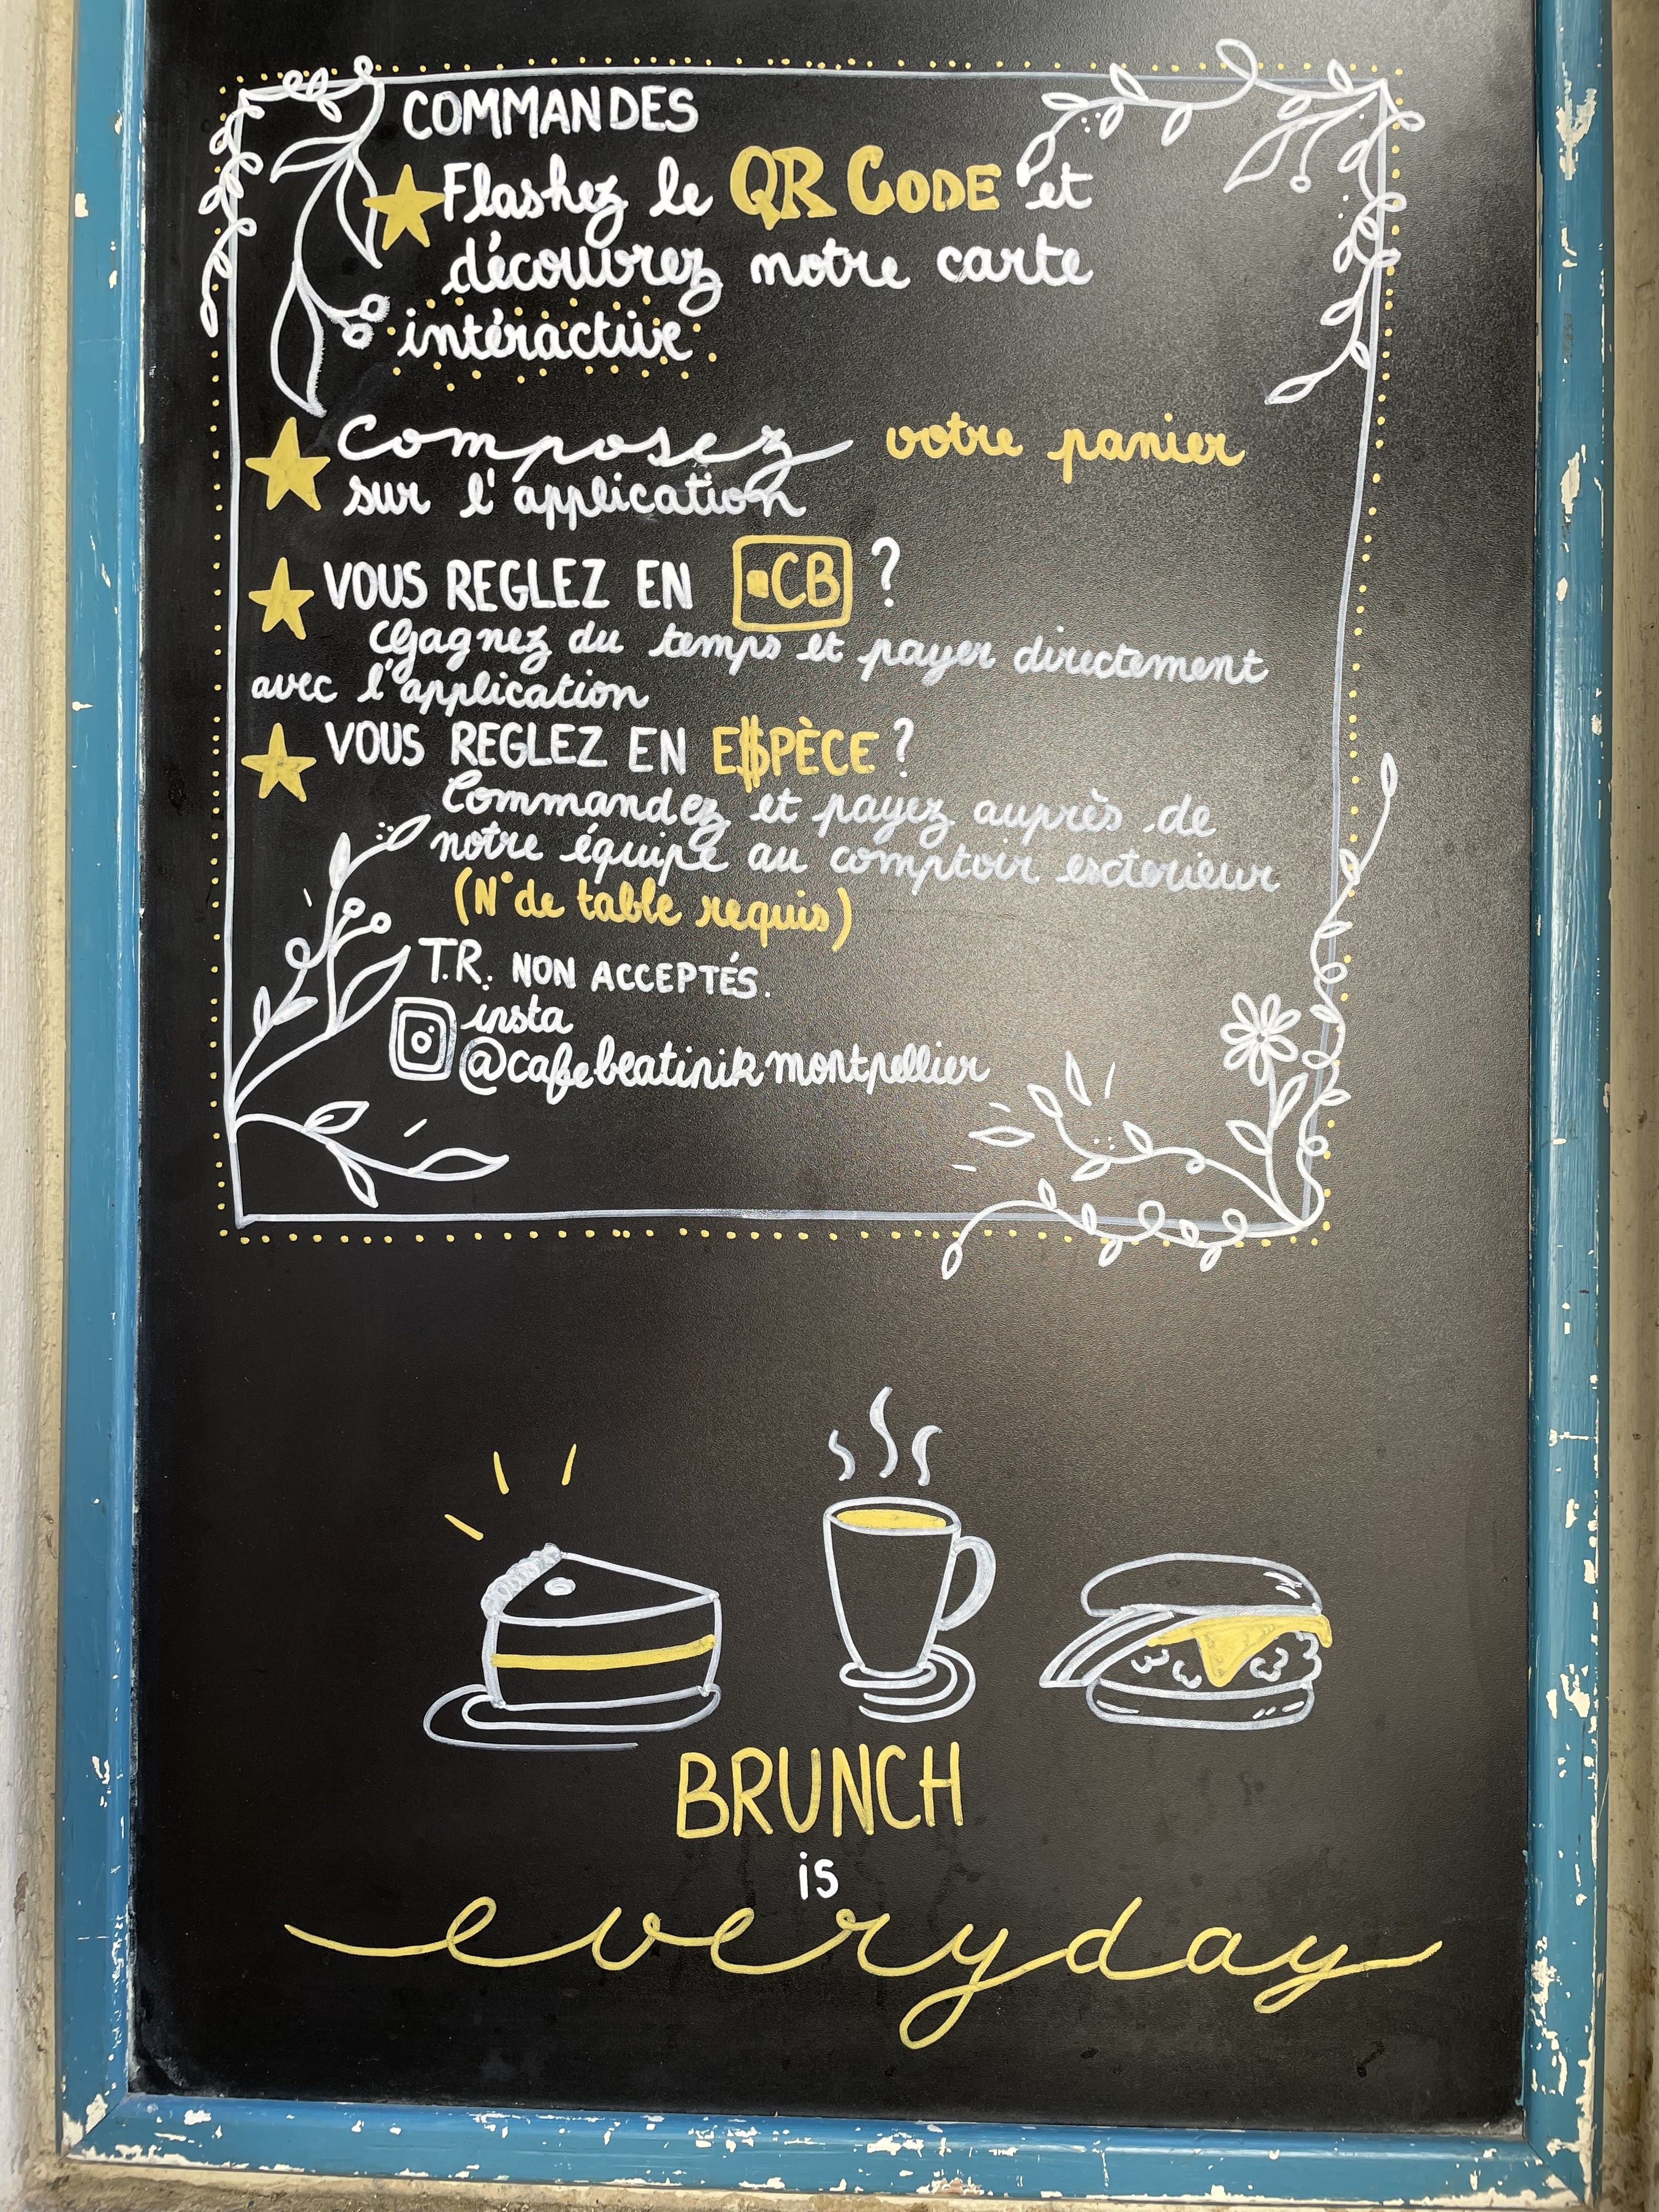 COMMANDES
Flashez le QR CODE et
découvrez notre carte
intéractive
Composez votre panier
sur l'application
VOUS REGLEZ EN CB ?
Gagnez du temps et payer directement
avec l'application
VOUS REGLEZ EN E$PÈCE ?
Commandez et payez auprès de
notre équipe au comptoir exterieur
(N° de table requis)
T.R. NON ACCEPTÉS.
insta
@cafebeatinikmontpellier
BRUNCH
is
everyday